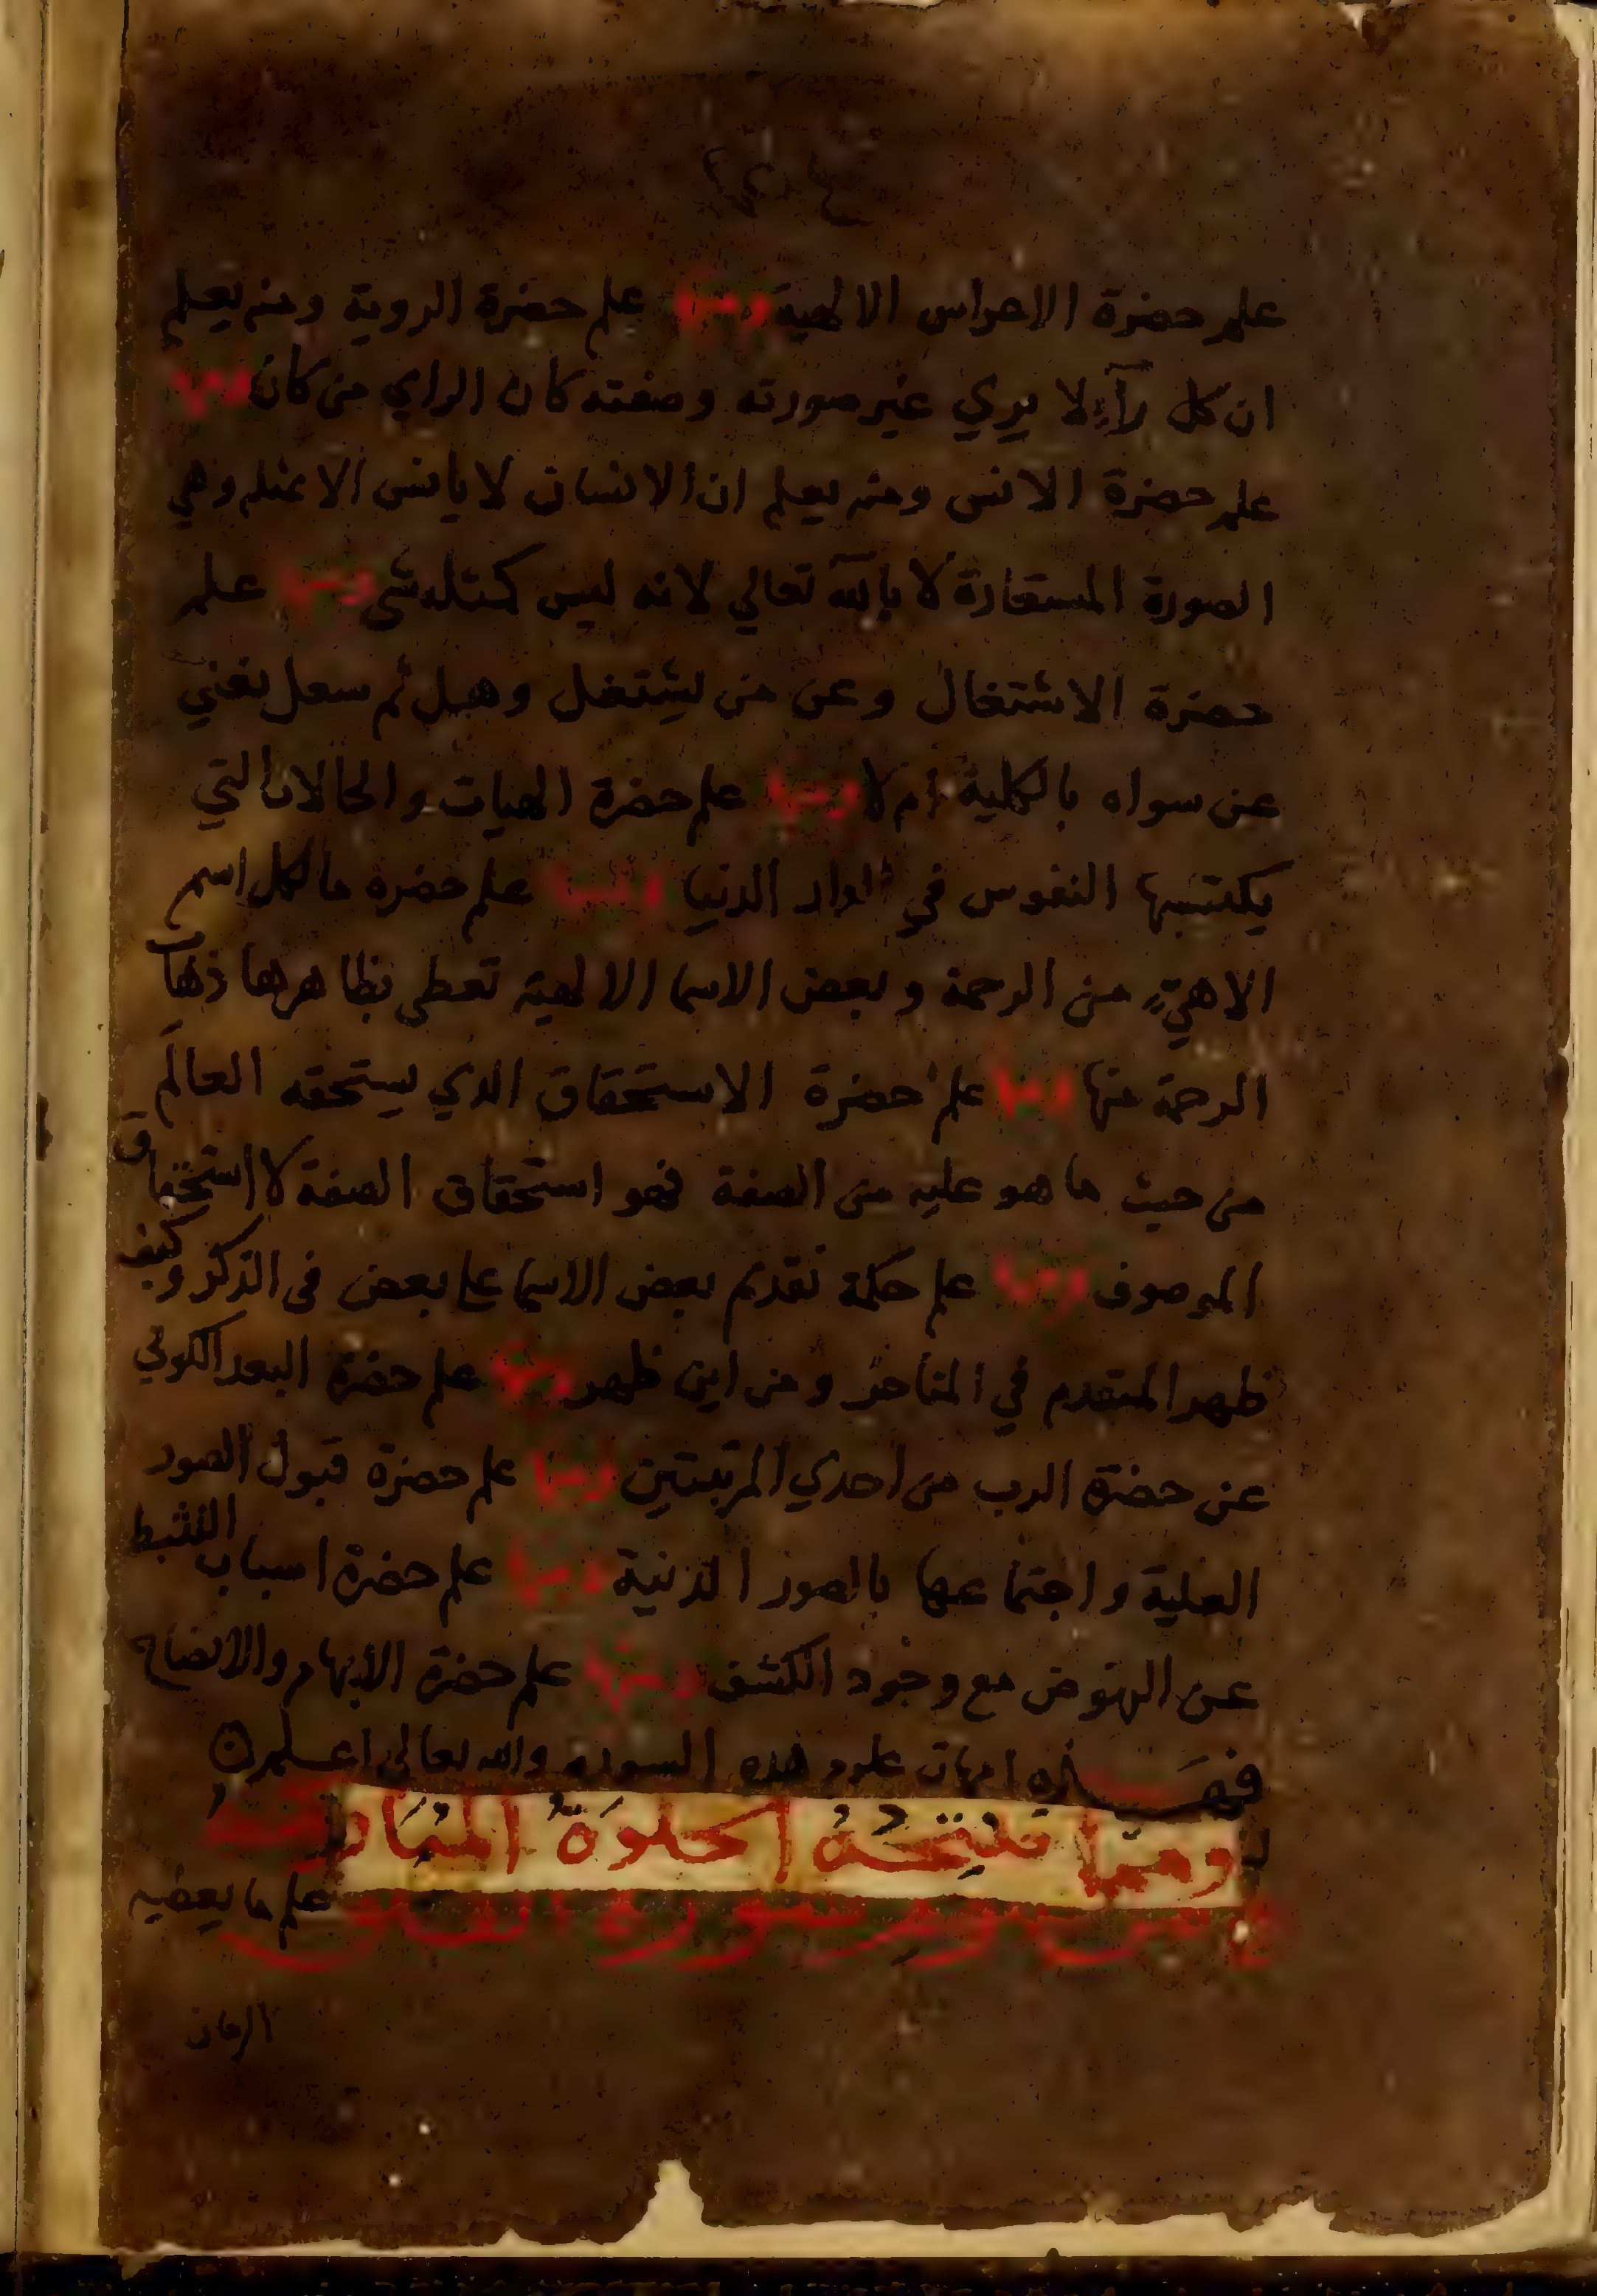 علم حضرة الاعراس الالهية ومنها علم حضرة الروية ومنه يعلم
ان كل رآءٍ لا يري غير صورته وصفته كان الراي من كان ومنها
علم حضرة الانس ومنه يعلم ان الانسان لا يانس الا بمثله وهي
الصورة المستعارة لا بالله تعالي لانه ليس كمثله شي ومنها علم
حضرة الاشتغال وعن من يشتغل وهل ثم سعل يغني
عن سواه بالكلية ام لا ومنها علم حضرة الهيات والحالات التي
يكتسبها النفوس في الدار الدنيا ومنها علم حضرة ما لكل اسم
الاهيّ من الرحمة وبعض الاسما الالهية تعطي بظاهرها ذهاب
الرحمة منها ومنها علم حضرة الاستحقاق الذي يستحقه العالَم
من حيث ما هو عليه من الصفة فهو استحقاق الصفة لا استحقاق
الموصوف ومنها علم حكمة تقدم بعض الاسما علي بعض في الذكر وكيف
ظهر المتقدم في المتاخر ومن اين ظهر ومنها علم حضرة البعد الكوني
عن حضرة الرب من احدي المرتبتين ومنها علم حضرة قبول الصور
العلية واجتماعها بالصور الدنية ومنها علم حضرة اسباب التثبط
عن النهوض مع وجود الكشف ومنها علم حضرة الابهام والايضاح
فهذه امهات علوم هذه السورة والله تعالي اعلم
ومما تنتجه الخلوة
سورة علم ما يعطيه